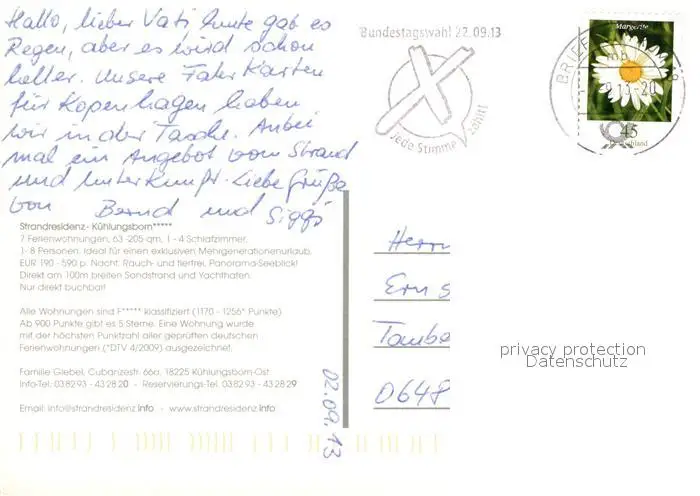 Hallo, lieber Vati heute gab es
Regen, aber es wird schon
heller. Unsere Fahrkarten
für Kopenhagen haben
wir in der Tasche. Anbei
mal ein Angebot vom Strand
und Unterkunft. Liebe Grüße
von Bernd und Siggi
Strandresidenz- Kühlungsborn*****
7 Ferienwohnungen, 63 -205 qm, 1 - 4 Schlafzimmer,
1- 8 Personen. Ideal für einen exklusiven Mehrgenerationenurlaub.
EUR 190 - 590 p. Nacht. Rauch- und tierfrei, Panorama-Seeblick!
Direkt am 100m breiten Sandstrand und Yachthafen.
Nur direkt buchbar!
Alle Wohnungen sind F***** klassifiziert (1170 - 1256* Punkte)
Ab 900 Punkte gibt es 5 Sterne. Eine Wohnung wurde
mit der höchsten Punktzahl aller geprüften deutschen
Ferienwohnungen (*DTV 4/2009) ausgezeichnet.
Familie Giebel, Cubanzestr. 66a, 18225 Kühlungsborn-Ost
Info-Tel: 03 82 93 - 43 28 20 - Reservierungs-Tel. 03 82 93 - 43 28 29
Email: info@strandresidenz.info - www.strandresidenz.info
02.09.13
Bundestagswahl 22.09.13
Jede Stimme zählt!
Margerite
BRIEF
9.13-20
45
Deutschland
Herrn
Erns
Taube
0648
privacy protection
Datenschutz